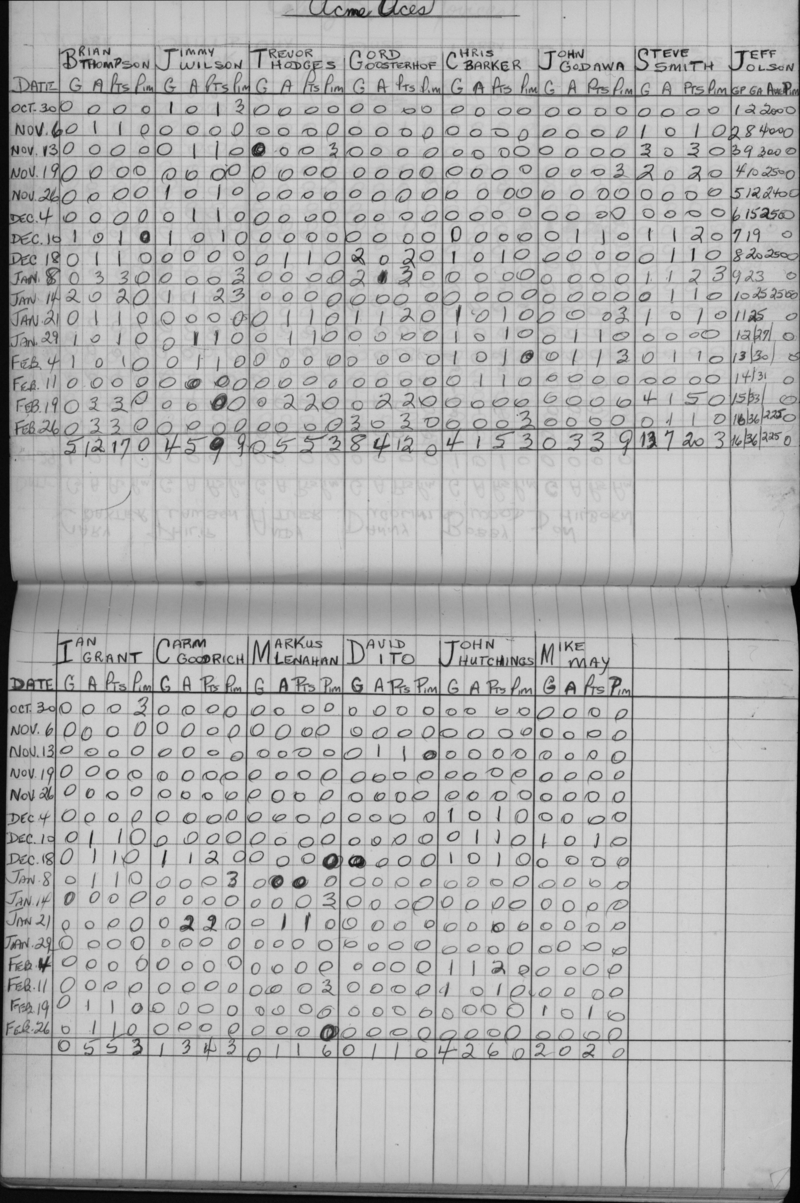 Acme Aces
BRIAN THOMPSON JIMMY WILSON TREVOR HODGES GORD OOSTERHOF CHRIS BARKER JOHN GODAWA STEVE SMITH JEFF OLSON
DATE G A Pts Pim G A Pts Pim G A Pts Pim G A Pts Pim G A Pts Pim G A Pts Pim G A Pts Pim GP GA Ave Pim
OCT. 30 0 0 0 0 1 0 1 3 0 0 0 0 0 0 0 0 0 0 0 0 0 0 0 0 0 0 0 0 1 2 200 0
NOV. 6 0 1 1 0 0 0 0 0 0 0 0 0 0 0 0 0 0 0 0 0 0 0 0 0 1 0 1 0 2 8 400 0
NOV. 13 0 0 0 0 0 1 1 0 0 0 3 0 0 0 0 0 0 0 0 0 0 0 0 3 0 3 0 3 9 300 0
NOV. 19 0 0 0 0 0 0 0 0 0 0 0 0 0 0 0 0 0 0 0 0 0 0 0 3 2 0 2 0 4 10 250 0
NOV. 26 0 0 0 0 1 0 1 0 0 0 0 0 0 0 0 0 0 0 0 0 0 0 0 0 0 0 0 0 5 12 240 0
DEC. 4 0 0 0 0 0 1 1 0 0 0 0 0 0 0 0 0 0 0 0 0 0 0 0 0 0 0 0 0 6 15 250 0
DEC. 10 1 0 1 0 1 0 1 0 0 0 0 0 0 0 0 0 0 0 0 0 0 1 1 0 1 1 2 0 7 19 0
DEC 18 0 1 1 0 0 0 0 0 0 1 1 0 2 0 2 0 1 0 1 0 0 0 0 0 0 1 1 0 8 20 250 0
JAN. 8 0 3 3 0 0 0 0 3 0 0 0 0 2 1 3 0 0 0 0 0 0 0 0 0 1 1 2 3 9 23 0
JAN. 14 2 0 2 0 1 1 2 3 0 0 0 0 0 0 0 0 0 0 0 0 0 0 0 0 0 1 1 0 10 25 250 0
JAN 21 0 1 1 0 0 0 0 0 0 1 1 0 1 1 2 0 1 0 1 0 0 0 0 3 1 0 1 0 11 25 0
JAN. 29 1 0 1 0 0 1 1 0 0 1 1 0 0 0 0 0 1 0 1 0 0 1 1 0 0 0 0 0 12/27/ 0
FEB. 4 1 0 1 0 0 1 1 0 0 0 0 0 0 0 0 0 1 0 1 0 0 1 1 3 0 1 1 0 13/30/ 0
FEB. 11 0 0 0 0 0 0 0 0 0 0 0 0 0 0 0 0 0 1 1 0 0 0 0 0 0 0 0 0 14/31 0
FEB. 19 0 3 3 0 0 0 0 0 0 2 2 0 0 2 2 0 0 0 0 0 0 0 0 0 4 1 5 0 15/33/ 0
FEB. 26 0 3 3 0 0 0 0 0 0 0 0 0 3 0 3 0 0 0 0 3 0 0 0 0 0 1 1 0 16/36/225 0
5 12 17 0 4 5 9 9 0 5 5 3 8 4 12 0 4 1 5 3 0 3 3 9 13 7 20 3 16/36/225 0
IAN GRANT CARM GOODRICH MARKUS LENAHAN DAVID ITO JOHN HUTCHINGS MIKE MAY
DATE G A Pts Pim G A Pts Pim G A Pts Pim G A Pts Pim G A Pts Pim G A Pts Pim
OCT. 30 0 0 0 3 0 0 0 0 0 0 0 0 0 0 0 0 0 0 0 0 0 0 0 0
NOV. 6 0 0 0 0 0 0 0 0 0 0 0 0 0 0 0 0 0 0 0 0 0 0 0 0
NOV. 13 0 0 0 0 0 0 0 0 0 0 0 0 0 1 1 0 0 0 0 0 0 0 0 0
NOV. 19 0 0 0 0 0 0 0 0 0 0 0 0 0 0 0 0 0 0 0 0 0 0 0 0
NOV. 26 0 0 0 0 0 0 0 0 0 0 0 0 0 0 0 0 0 0 0 0 0 0 0 0
DEC 4 0 0 0 0 0 0 0 0 0 0 0 0 0 0 0 0 1 0 1 0 0 0 0 0
DEC. 10 0 1 1 0 0 0 0 0 0 0 0 0 0 0 0 0 0 1 1 0 1 0 1 0
DEC. 18 0 1 1 0 1 1 2 0 0 0 0 0 0 0 0 0 1 0 1 0 0 0 0 0
JAN. 8 0 1 1 0 0 0 0 3 0 0 0 0 0 0 0 0 0 0 0 0 0 0 0 0
JAN. 14 0 0 0 0 0 0 0 0 0 0 0 3 0 0 0 0 0 0 0 0 0 0 0 0
JAN 21 0 0 0 0 0 2 2 0 0 1 1 0 0 0 0 0 0 0 0 0 0 0 0 0
JAN. 29 0 0 0 0 0 0 0 0 0 0 0 0 0 0 0 0 0 0 0 0 0 0 0 0
FEB 4 0 0 0 0 0 0 0 0 0 0 0 0 0 0 0 0 1 1 2 0 0 0 0 0
FEB. 11 0 0 0 0 0 0 0 0 0 0 0 3 0 0 0 0 1 0 1 0 0 0 0 0
FEB. 19 0 1 1 0 0 0 0 0 0 0 0 0 0 0 0 0 0 0 0 0 1 0 1 0
FEB. 26 0 1 1 0 0 0 0 0 0 0 0 0 0 0 0 0 0 0 0 0 0 0 0 0
0 5 5 3 1 3 4 3 0 1 1 6 0 1 1 0 4 2 6 0 2 0 2 0